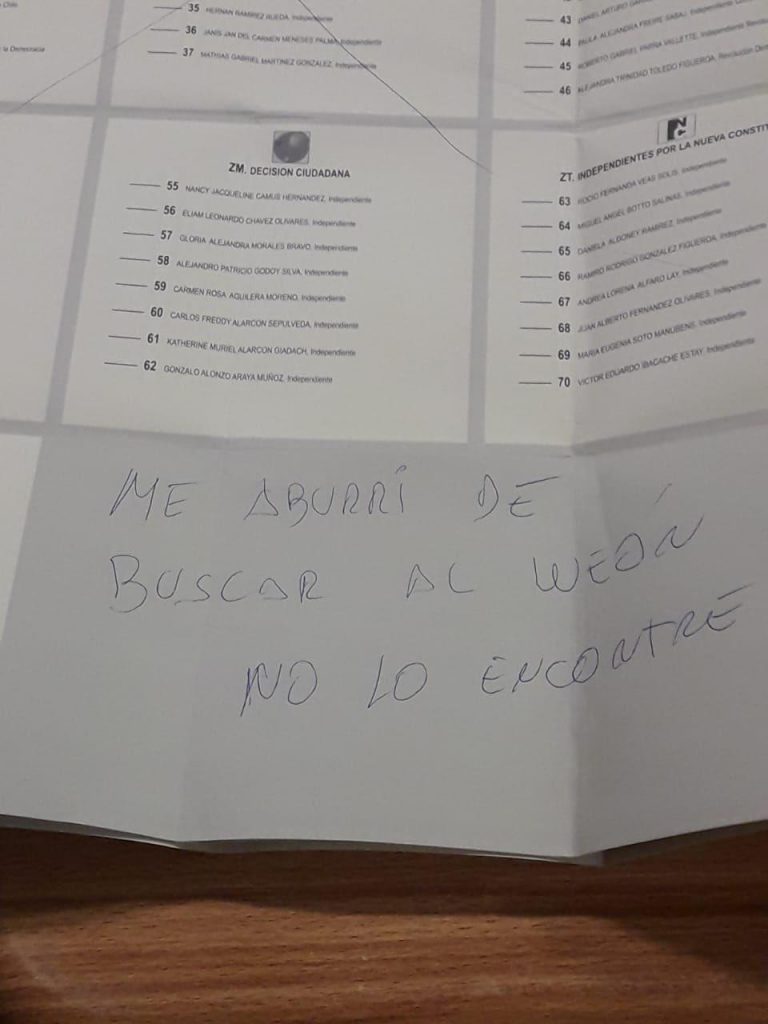 la Democracia
35 HERNAN RAMIREZ RUEDA, Independiente
36 JANIS JAN DEL CARMEN MENESES PALMA, Independiente
37 MATHIAS GABRIEL MARTINEZ GONZALEZ, Independiente
43 DANIEL ARTURO
44 PAULA ALEJANDRA FREIRE SABAJ, Independiente
45 ROBERTO GABRIEL PARRA VALLETTE, Independiente
46 ALEJANDRA TRINIDAD TOLEDO FIGUEROA, Revolución
ZM. DECISION CIUDADANA
55 NANCY JACQUELINE CAMUS HERNANDEZ, Independiente
56 ELIAM LEONARDO CHAVEZ OLIVARES, Independiente
57 GLORIA ALEJANDRA MORALES BRAVO, Independiente
58 ALEJANDRO PATRICIO GODOY SILVA, Independiente
59 CARMEN ROSA AGUILERA MORENO, Independiente
60 CARLOS FREDDY ALARCON SEPULVEDA, Independiente
61 KATHERINE MURIEL ALARCON GIADACH, Independiente
62 GONZALO ALONZO ARAYA MUÑOZ, Independiente
ZT. INDEPENDIENTES POR LA NUEVA CONSTIT
63 ROCIO FERNANDA VEAS SOLIS, Independiente
64 MIGUEL ANGEL BOTTO SALINAS, Independiente
65 DANIELA ALDONEY RAMIREZ, Independiente
66 RAMIRO RODRIGO GONZALEZ FIGUEROA, Independiente
67 ANDREA LORENA ALFARO LAY, Independiente
68 JUAN ALBERTO FERNANDEZ OLIVARES, Independiente
69 MARIA EUGENIA SOTO MANUBENS, Independiente
70 VICTOR EDUARDO IBACACHE ESTAY, Independiente
ME ABURRÍ DE
BUSCAR AL WEÓN
NO LO ENCONTRÉ